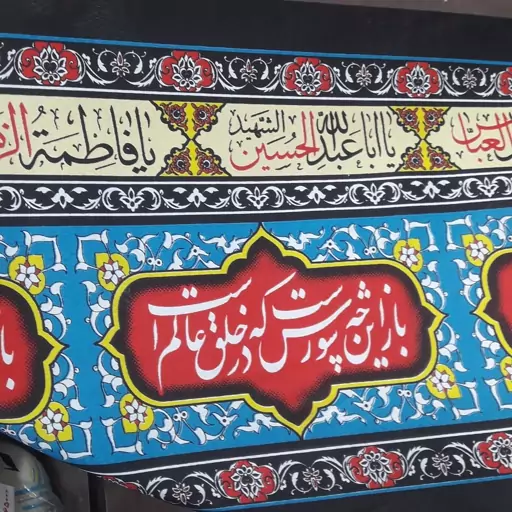 العباس یا اباعبدالله الحسین الشهید یا فاطمة الز
باز این چه شورش است که در خلق عالم است
با